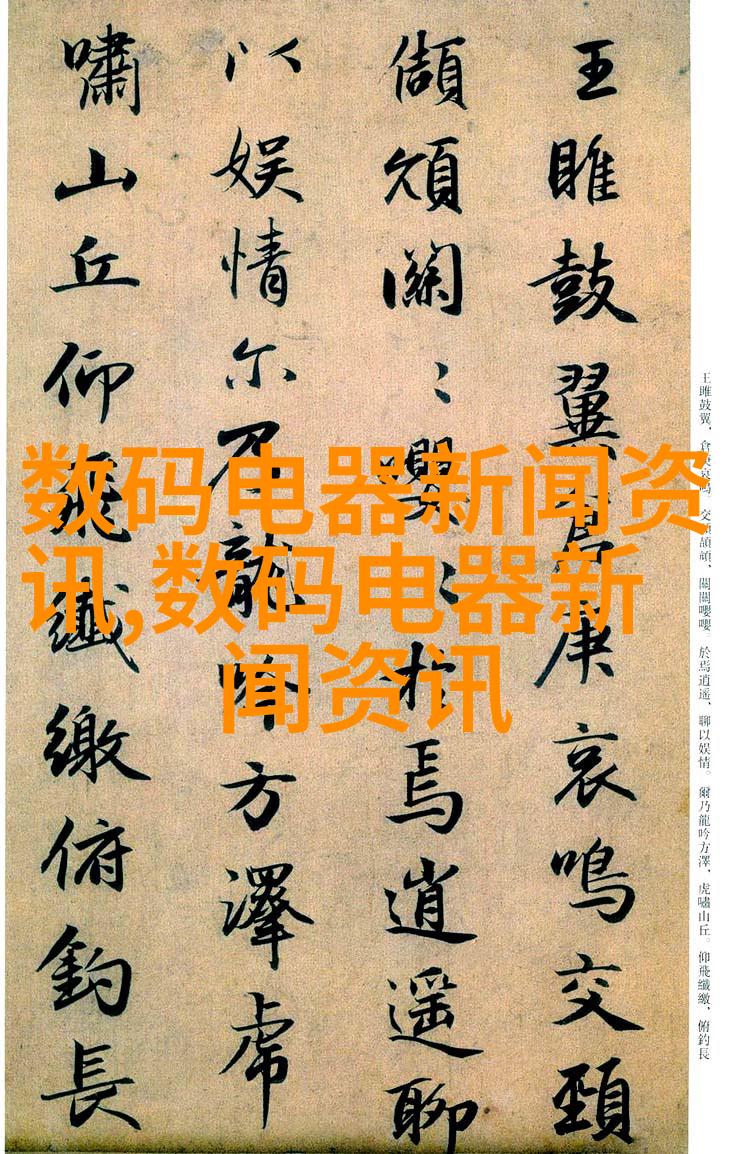 王雎鼓翼倉庚哀鳴交頸
頡頏關〻嚶〻於焉逍遥聊
以娱情尔乃龍吟方澤虎
嘯山丘仰飛纖繳俯釣長
数码电器新闻资
讯,数码电器新
闻资讯
王雎鼓翼、倉庚哀鳴。交頸頡頏、關關嚶嚶。於焉逍遥、聊以娱情。爾乃龍吟方澤、虎嘯山丘。仰飛纖繳、俯釣長